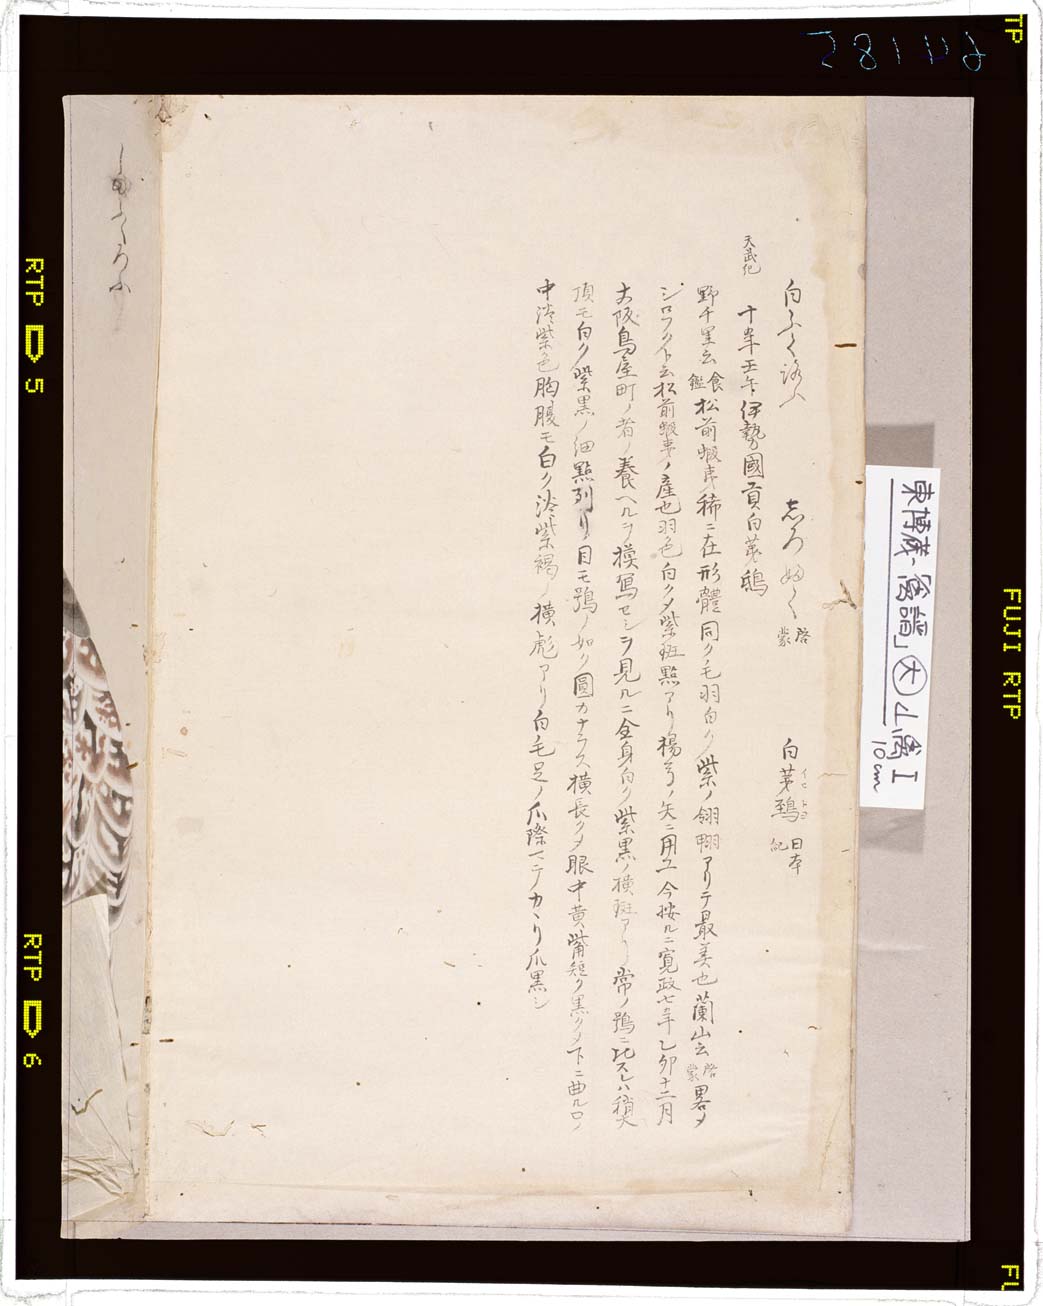 白ふく語ふ　志ろぬく 啓蒙　白茅鵄 イヒトヨ 日本紀
天武紀 十一年壬午伊勢國貢白茅鴟
野千里云 食鑑 松前蝦夷稀ニ在形體同ク毛羽白ク紫ノ翎翈アリテ最美也蘭山云 啓蒙 畧メ
シロフクト云松前蝦夷ノ産也羽色白クメ紫斑點アリ楊弓ノ矢ニ用ユ今按ルニ寛政七年乙卯十二月
大阪鳥屋町ノ者ノ養ヘルヲ模寫セシヲ見ルニ全身白ク紫黒ノ横斑アリ常ノ鴞ニ比スレハ稍大
頂モ白ク紫黒ノ細點列リ目モ鴞ノ如ク圓カナラス横長クメ眼中黄嘴短ク黒クメ下ニ曲ル口ノ
中淡紫色胸腹モ白ク淡紫褐ノ横彪アリ白毛足ノ爪際マテカヽリ爪黒シ
東博蔵「禽譜」大 山禽 I
10cm
RTP 5
RTP 6
FUJI RTP